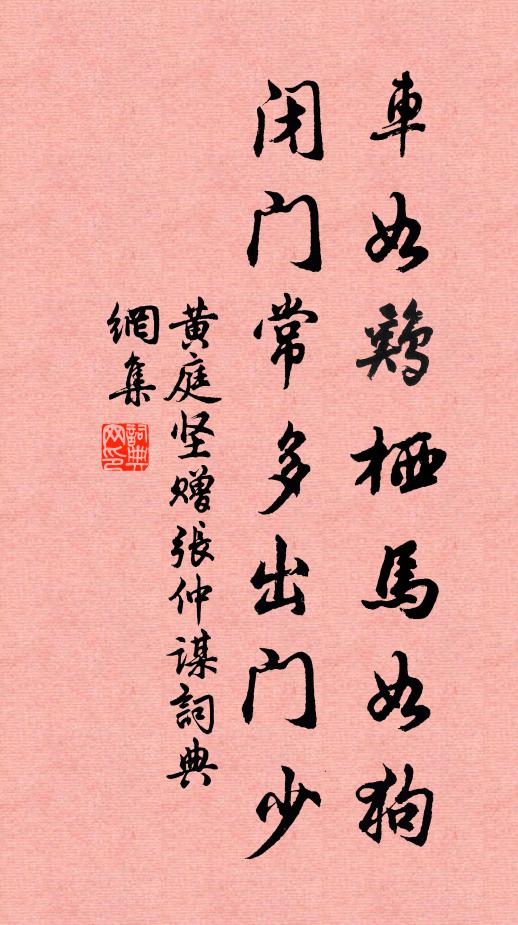 車如鷄栖馬如狗
闭门常多出门少
黄庭坚赠張仲谋詞典
網集
詞典
网印